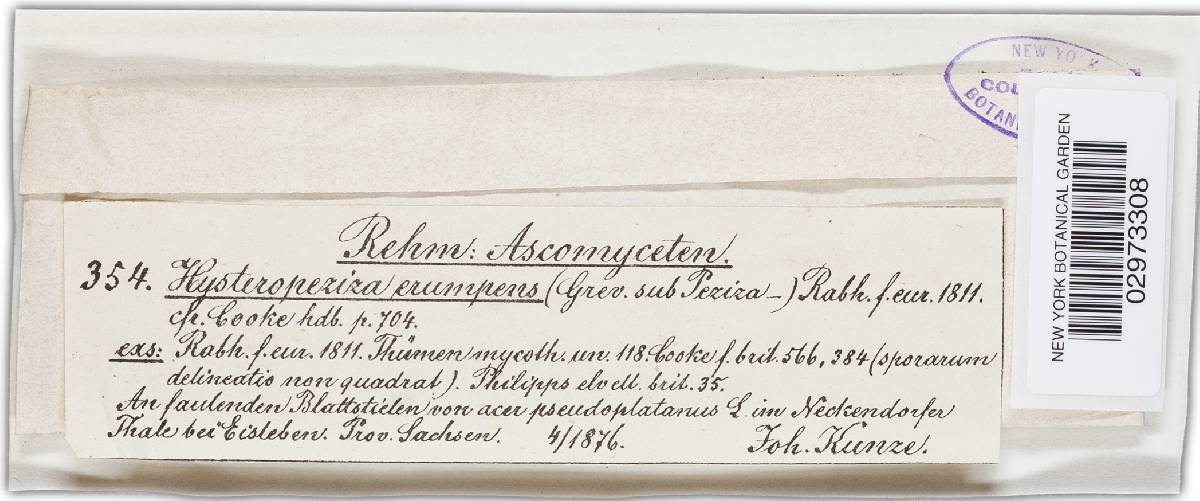 NEW YORK
BOTAN
Rehm: Ascomyceten.
354. Hysteropeziza erumpens (Grev. sub Peziza –) Rabh. f. eur. 1811.
cfr. Cooke hdb. p. 704.
exs: Rabh. f. eur. 1811. Thümen mycoth. un. 118. Cooke f. brit. 566, 384 (sporarum
delineatio non quadrat). Philipps elvell. brit. 35.
An faulenden Blattstielen von acer pseudoplatanus L. im Neckendorfer
Thale bei Eisleben. Prov. Sachsen. 4/1876. Joh. Kunze.
NEW YORK BOTANICAL GARDEN
02973308